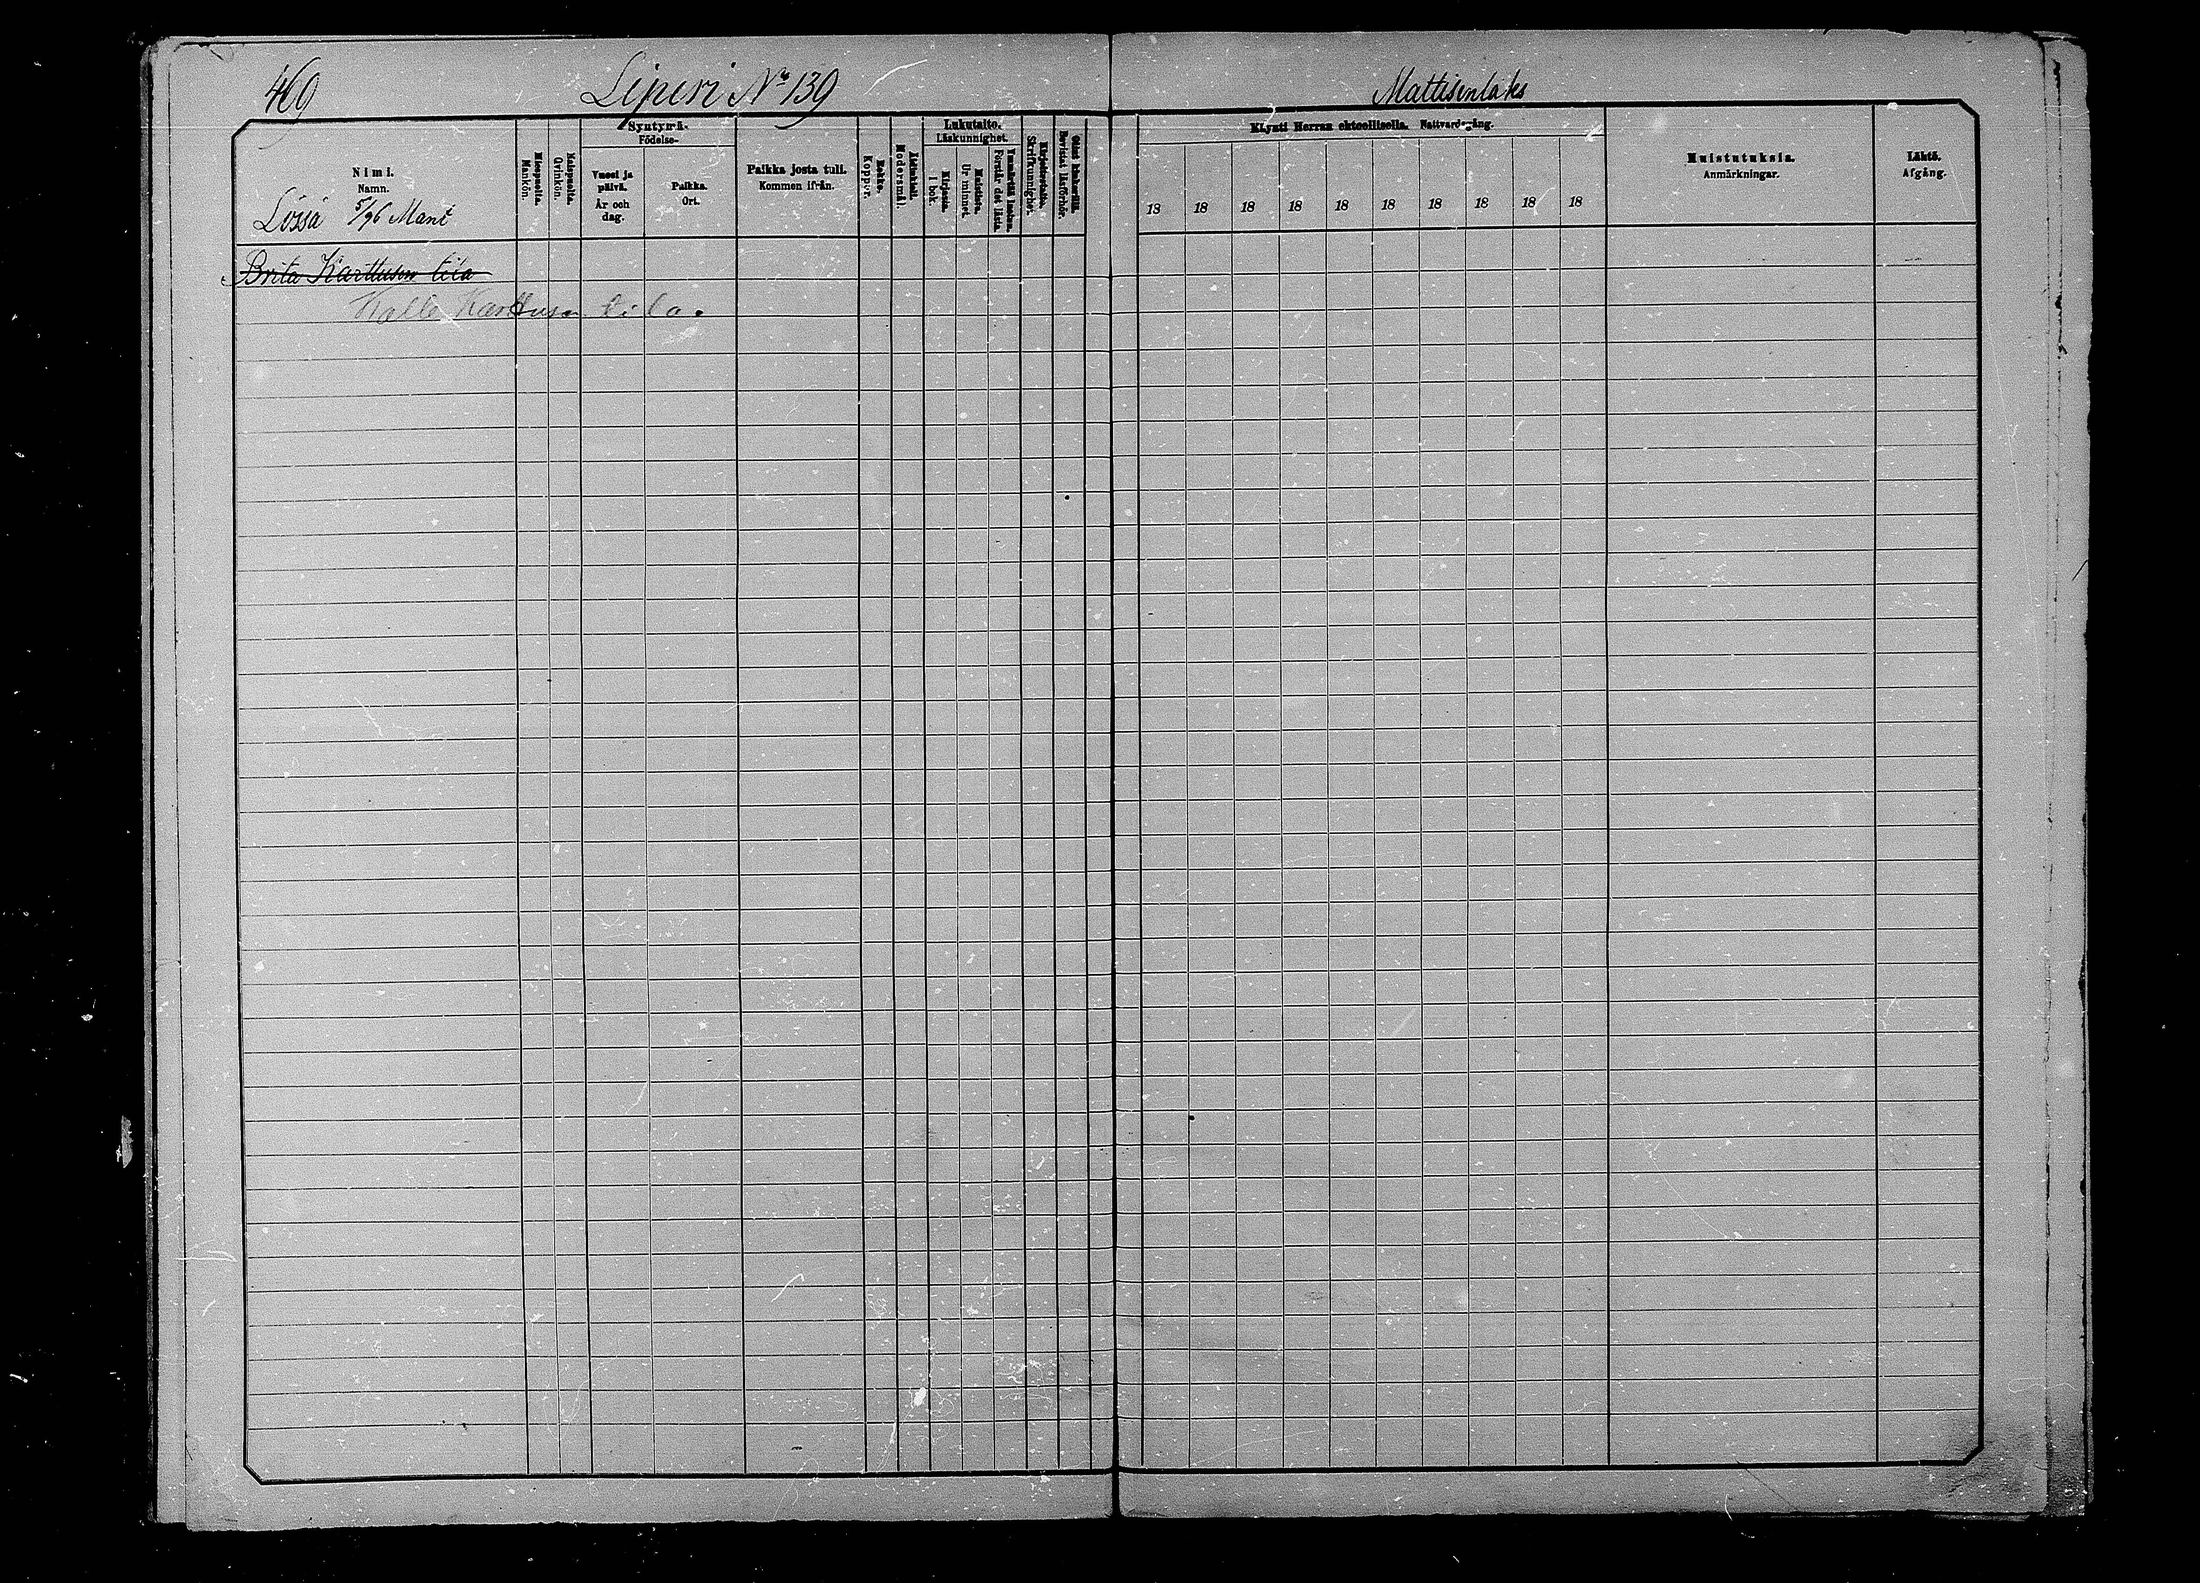 469
Liperi No 139
Mattisenlaks
Nimi.
Namn.
Lössä 5/96 Mant
Miespuolia.
Mankön.
Naispuolia.
Qvinkön.
Syntymä-
Födelse-
Vuosi ja päivä.
År och dag.
Paikka.
Ort.
Paikka josta tuli.
Kommen ifrån.
Rokko.
Koppor.
Äidinkieli.
Modersmål.
Lukutaito.
Läskunnighet.
Kirjasta.
I bok.
Muistista.
Ur minnet.
Ymmärtää luetun.
Förstår det lästa.
Kirjoitustaito.
Skrifkunnighet.
Ollut kinkerillä.
Bevistat läsförhör.
Käynti Herran ehtoollisella. Nattvardsgång.
18 18 18 18 18 18 18 18 18 18
Muistutuksia.
Anmärkningar.
Lähtö.
Afgång.
Brita Karttusen tila
Kalle Karttusen tila.